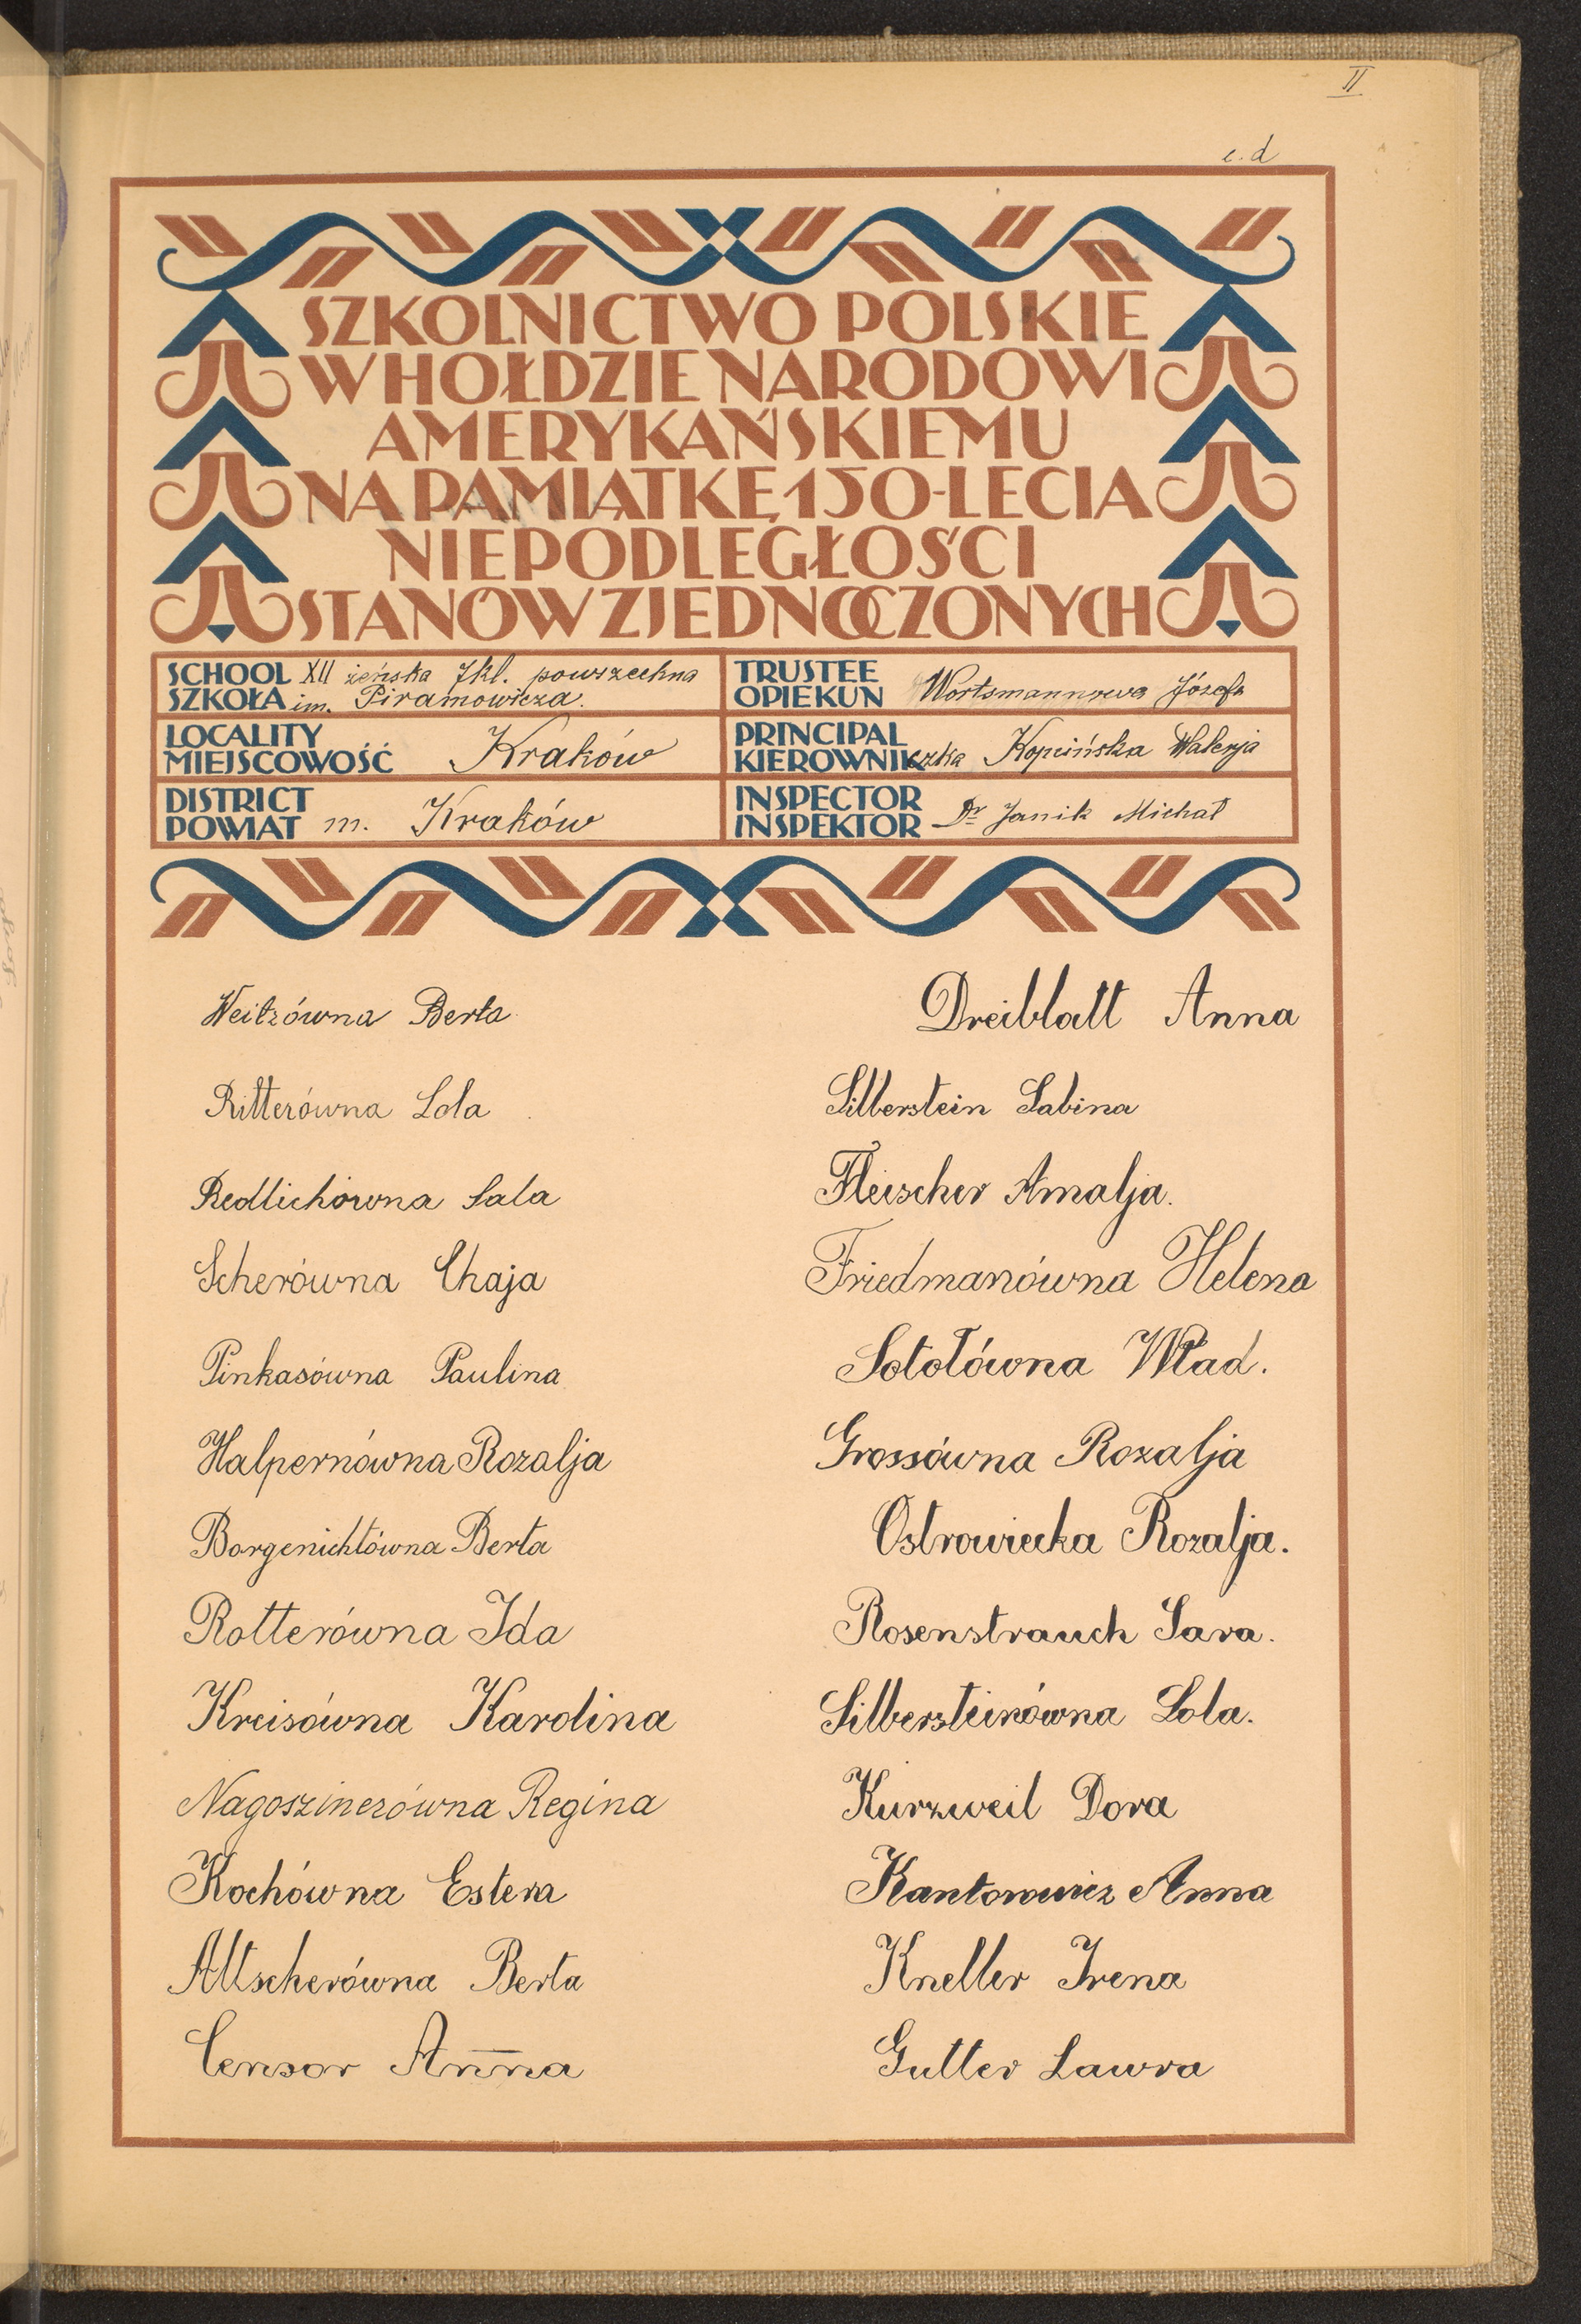 II
c.d
SZKOLNICTWO POLSKIE
W HOŁDZIE NARODOWI
AMERYKAŃSKIEMU
NA PAMIĄTKĘ 150-LECIA
NIEPODLEGŁOŚCI
STANÓW ZJEDNOCZONYCH
SCHOOL
SZKOŁA
XII żeńska 7kl. powszechna
im. Piramowicza.
TRUSTEE
OPIEKUN
Wortsmannowa Józefa
LOCALITY
MIEJSCOWOŚĆ
Kraków
PRINCIPAL
KIEROWNIczka Kopcińska Walerja
DISTRICT
POWIAT
m. Kraków
INSPECTOR
INSPEKTOR
Dr Janik Michał
Weitzówna Berta
Ritterówna Lola
Redlichówna Sala
Scherówna Chaja
Pinkasówna Paulina
Halpernówna Rozalja
Borgenichtówna Berta
Rotterówna Ida
Kreisówna Karolina
Nagoszinerówna Regina
Kochówna Estera
Altscherówna Berta
Censor Anna
Dreiblatt Anna
Silberstein Sabina
Fleischer Amalja.
Friedmanówna Helena
Sotołówna Wład.
Grossówna Rozalja
Ostrowiecka Rozalja.
Rosenstrauch Sara.
Silbersteinówna Lola.
Kurzweil Dora
Kantorowicz Anna
Kneller Irena
Gutter Lawra